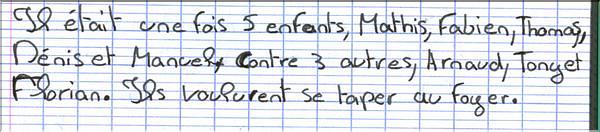 Il était une fois 5 enfants, Mathis, Fabien, Thomas,
Dénis et Manuel, contre 3 autres, Arnaud, Tony et
Florian. Ils voulurent se taper au foyer.